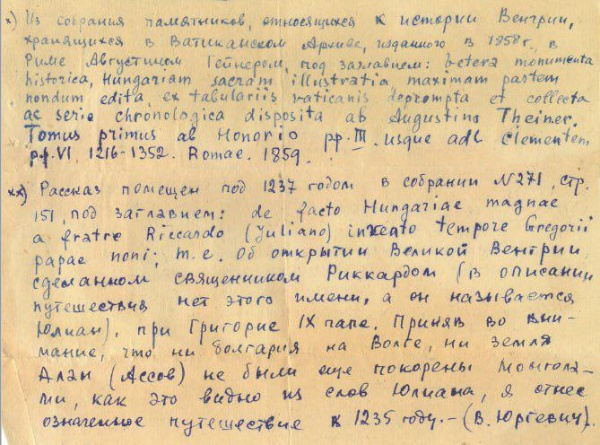 x) Из собрания памятников, относящихся к истории Венгрии,
хранящихся в Ватиканском Архиве, изданного в 1858г. в
Риме Августином Тейнером, под заглавием: vetera monumenta
historica, Hungariam sacram illustratia maximam partem
nondum edita, ex tabulariis vaticanis deprompta et collecta
ac serie chronologica disposita ab Augustino Theiner.
Tomus primus ab Honorio pp. III. usque adl Clementem
pp. VI. 1216-1352. Romae. 1859.
xx) Рассказ помещен под 1237 годом в собрании N271, стр.
151, под заглавием: de facto Hungariae magnae
a fratre Riccardo (Juliano) invento tempore Gregorii
papae noni; т.е. Об открытии Великой Венгрии,
сделанном священником Риккардом (в описании
путешествия нет этого имени, а он называется
Юлиан), при Григорие IX папе. Приняв во вни-
мание, что ни болгария на Волге, ни земля
Алан (Ассов) не были еще покорены Монгола-
ми, как это видно из слов Юлиана, я отнес
означенное путешествие к 1235 году. – (В. Юргевич).